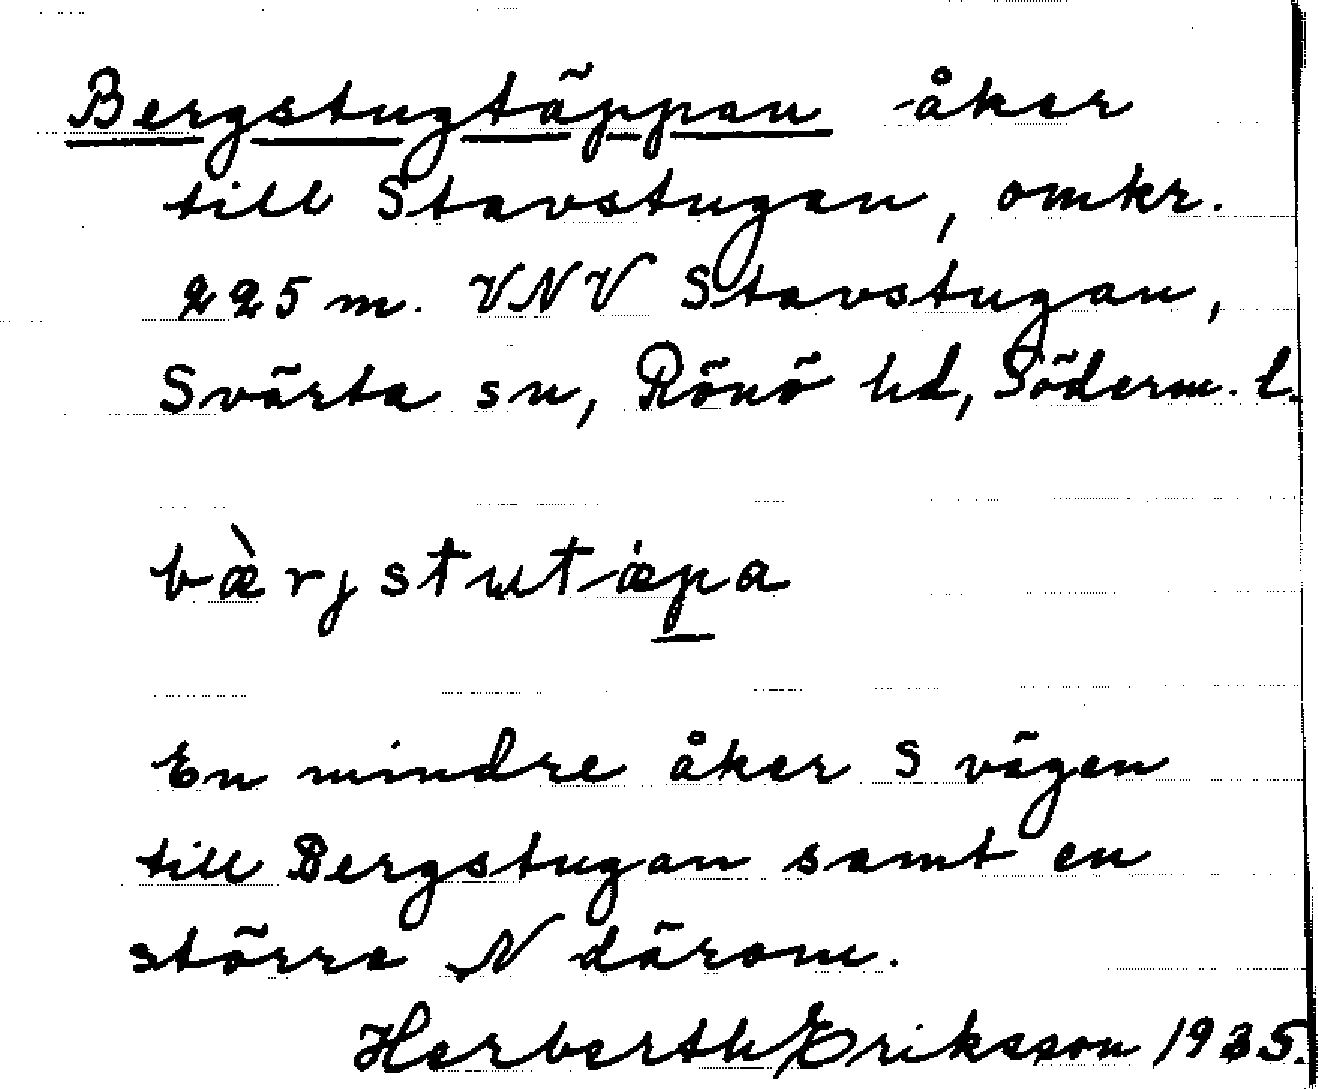 Bergstugtäppan åker
till Stavstugan, omkr.
225 m. VNV Stavstugan,
Svärta sn, Rönö hd, Söderm. l.
bæ̀rjstutæ̇pa
En mindre åker S vägen
till Bergstugan samt en
större N därom.
Herberth Eriksson 1935.